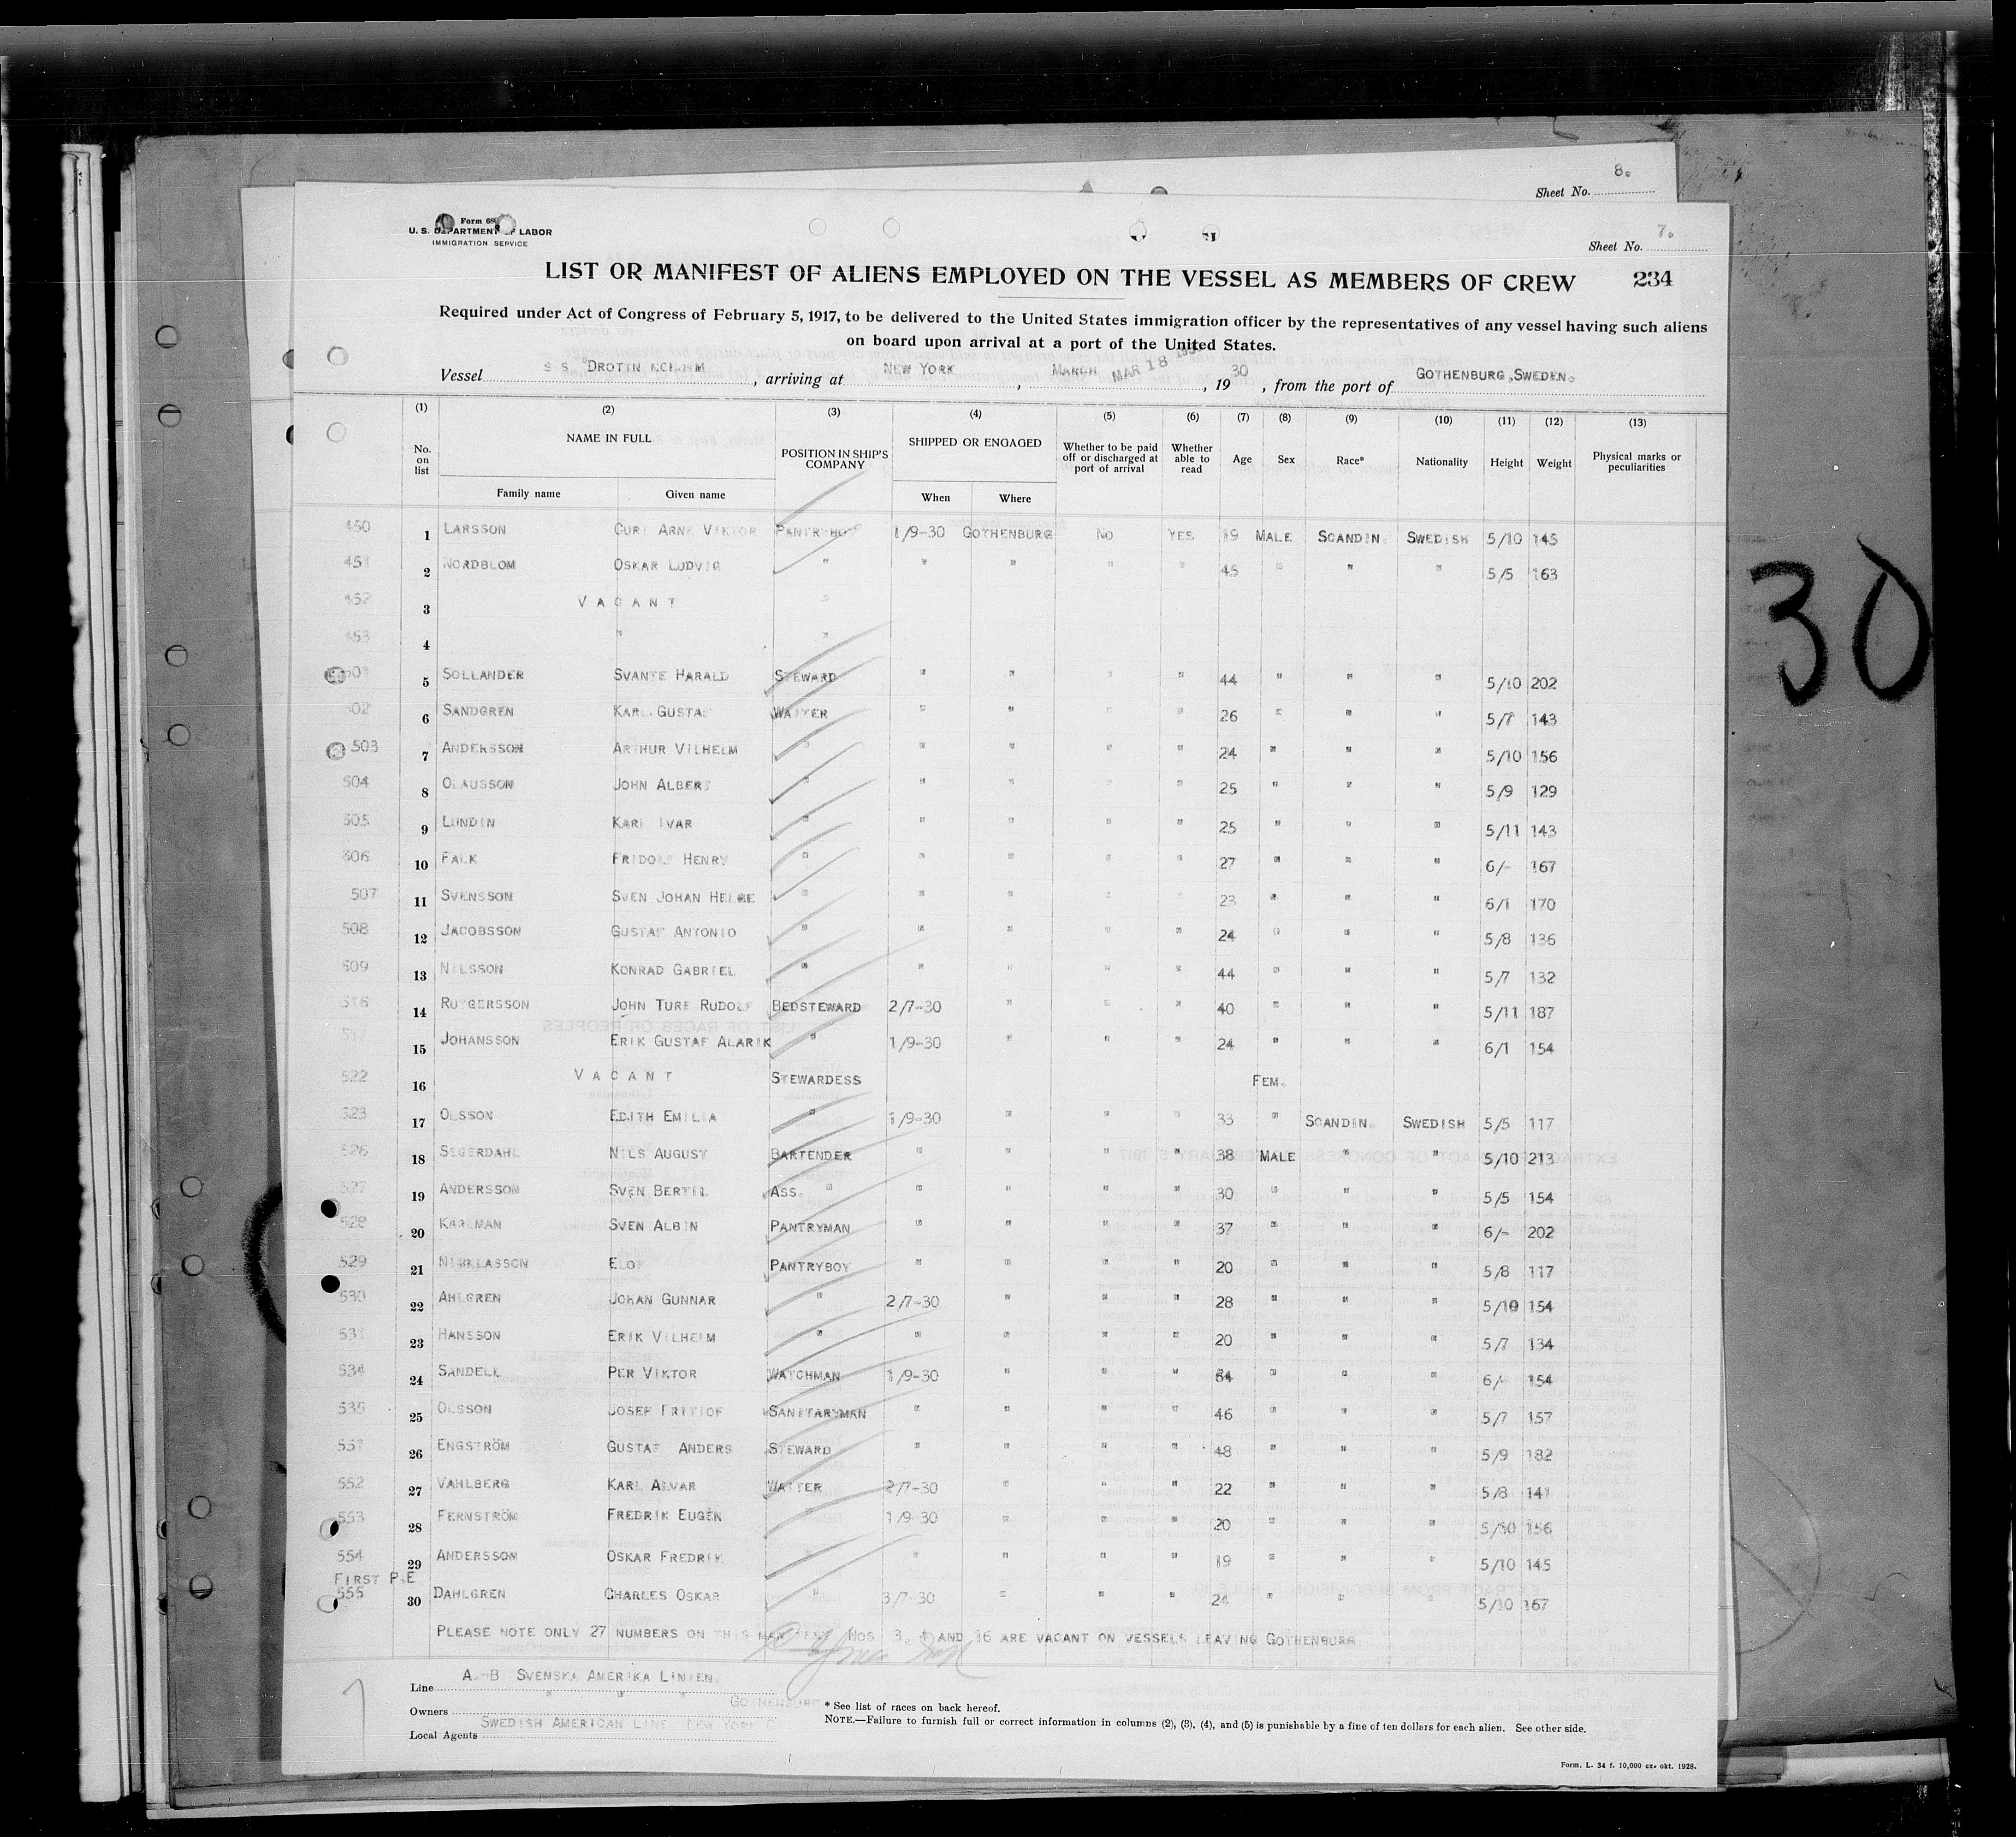 8.
Sheet No.
Form 68
U. S. DEPARTMENT OF LABOR
IMMIGRATION SERVICE
7.
Sheet No.
LIST OR MANIFEST OF ALIENS EMPLOYED ON THE VESSEL AS MEMBERS OF CREW 234
Required under Act of Congress of February 5, 1917, to be delivered to the United States immigration officer by the representatives of any vessel having such aliens
on board upon arrival at a port of the United States.
Vessel S S "DROTTNINGHOLM , arriving at NEW YORK , MARCH MAR 18 1930 , 19 30 , from the port of GOTHENBURG, SWEDEN.
(1) (2) (3) (4) (5) (6) (7) (8) (9) (10) (11) (12) (13)
No. on list NAME IN FULL POSITION IN SHIP'S COMPANY SHIPPED OR ENGAGED Whether to be paid off or discharged at port of arrival Whether able to read Age Sex Race* Nationality Height Weight Physical marks or peculiarities
Family name Given name When Where
450 1 LARSSON CURT ARNE VIKTOR PANTRYBOY 1/9-30 GOTHENBURG NO YES 19 MALE SCANDIN. SWEDISH 5/10 145
451 2 NORDBLOM OSKAR LUDVIG " " " " " 45 " " " 5/5 163
452 3 VACANT "
453 4 " "
501 5 SOLLANDER SVANTE HARALD STEWARD " " " " 44 " " " 5/10 202
502 6 SANDGREN KARL GUSTAF WAITER " " " " 26 " " " 5/7 143
503 7 ANDERSSON ARTHUR VILHELM " " " " " 24 " " " 5/10 156
504 8 OLAUSSON JOHN ALBERT " " " " " 25 " " " 5/9 129
505 9 LUNDIN KARL IVAR " " " " " 25 " " " 5/11 143
506 10 FALK FRIDOLF HENRY " " " " " 27 " " " 6/- 167
507 11 SVENSSON SVEN JOHAN HELGE " " " " " 23 " " " 6/1 170
508 12 JACOBSSON GUSTAF ANTONIO " " " " " 24 " " " 5/8 136
509 13 NILSSON KONRAD GABRIEL " " " " " 44 " " " 5/7 132
516 14 RUTGERSSON JOHN TURE RUDOLF BEDSTEWARD 2/7-30 " " " 40 " " " 5/11 187
517 15 JOHANSSON ERIK GUSTAF ALARIK " 1/9-30 " " " 24 " " " 6/1 154
522 16 VACANT STEWARDESS FEM.
523 17 OLSSON EDITH EMILIA " 1/9-30 " " " 33 " SCANDIN. SWEDISH 5/5 117
526 18 SEGERDAHL NILS AUGUST BARTENDER " " " " 38 MALE " " 5/10 213
527 19 ANDERSSON SVEN BERTIL ASS. " " " " " 30 " " " 5/5 154
528 20 KARLMAN SVEN ALBIN PANTRYMAN " " " " 37 " " " 6/- 202
529 21 NIKKLASSON ELOF PANTRYBOY " " " " 20 " " " 5/8 117
530 22 AHLGREN JOHAN GUNNAR " 2/7-30 " " " 28 " " " 5/10 154
531 23 HANSSON ERIK VILHELM " " " " " 20 " " " 5/7 134
534 24 SANDELL PER VIKTOR WATCHMAN 1/9-30 " " " " " " 6/- 154
535 25 OLSSON JOSEF FRITIOF SANITARYMAN " " " " 46 " " " 5/7 157
551 26 ENGSTRÖM GUSTAF ANDERS STEWARD " " " " 48 " " " 5/9 182
552 27 VAHLBERG KARL ALVAR WAITER 2/7-30 " " " 22 " " " 5/8 141
553 28 FERNSTRÖM FREDRIK EUGÉN " 1/9-30 " " " 20 " " " 5/10 156
554 29 ANDERSSON OSKAR FREDRIK " " " " " 19 " " " 5/10 145
FIRST P.E
555 30 DAHLGREN CHARLES OSKAR " 3/7-30 " " " 24 " " " 5/10 167
PLEASE NOTE ONLY 27 NUMBERS ON THIS MANIFEST. NOS 3, 4 AND 16 ARE VACANT ON VESSELS LEAVING GOTHENBURG
Line A.-B. SVENSKA AMERIKA LINIEN.
Owners " " " GOTHENBURG
Local Agents SWEDISH AMERICAN LINE NEW YORK
* See list of races on back hereof.
NOTE.—Failure to furnish full or correct information in columns (2), (3), (4), and (5) is punishable by a fine of ten dollars for each alien. See other side.
Form. L. 34 f. 10,000 ex. okt. 1928.
30